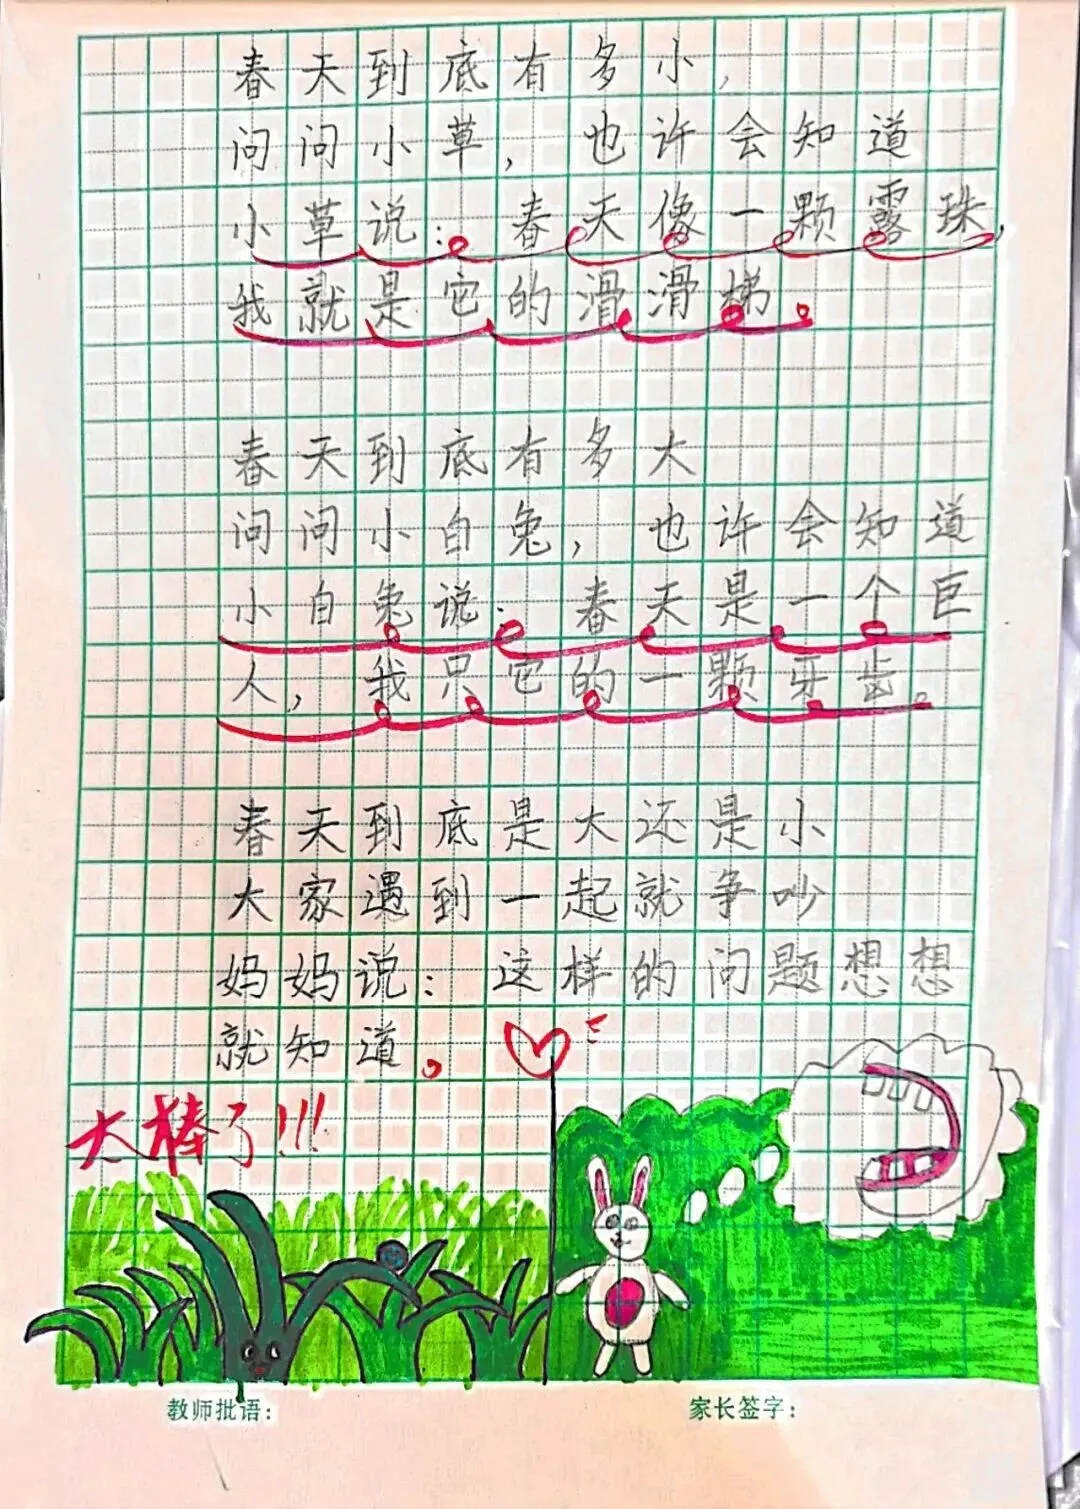 春天到底有多小，
问问小草，也许会知道
小草说：春天像一颗露珠，
我就是它的滑滑梯。
春天到底有多大
问问小白兔，也许会知道
小白兔说：春天是一个巨
人，我只它的一颗牙齿。
春天到底是大还是小
大家遇到一起就争吵
妈妈说：这样的问题想想
就知道。
太棒了!!!
教师批语：
家长签字：